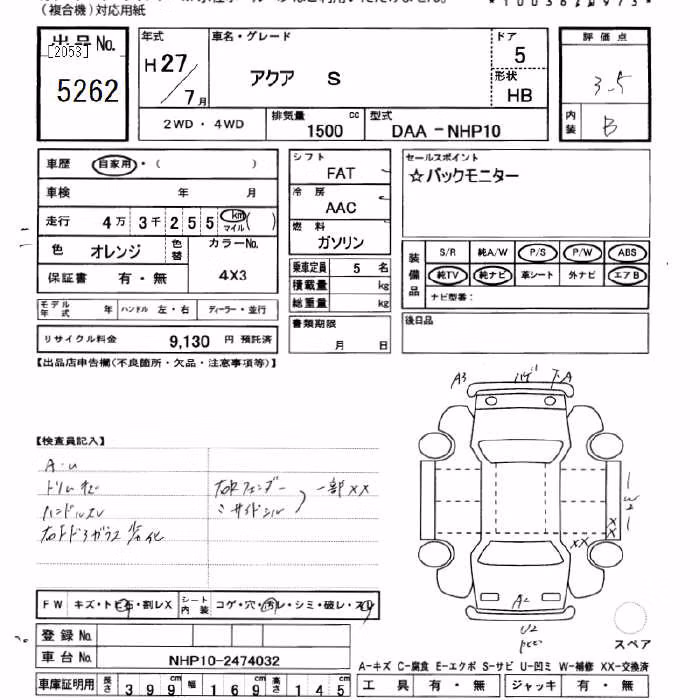 (複合機)対応用紙
出品No.
[2053]
5262
年式
H27/7月
車名・グレード
アクア S
ドア
5
形状
HB
評価点
3.5
内装
B
2WD・4WD
排気量 1500 cc
型式 DAA-NHP10
車歴 自家用・( )
車検 年 月
走行 4万3千255 km マイル ( )
色 オレンジ 色替
カラーNo.
4X3
保証書 有・無
モデル年式 年 ハンドル 左・右 ディーラー・並行
リサイクル料金 9,130 円 預託済
シフト
FAT
冷房
AAC
燃料
ガソリン
乗車定員 5 名
積載量 kg
総重量 kg
書類期限
月 日
セールスポイント
☆バックモニター
装備品
S/R 純A/W P/S P/W ABS
純TV 純ナビ 革シート 外ナビ エアB
ナビ型番:
後日品
【出品店申告欄(不良箇所・欠品・注意事項等)】
【検査員記入】
A・U
ハンドルスレ
一部XX
A3
A
W2
XX
A2
U2
FW キズ・トビ石・割レX シート内装 コゲ・穴・汚レ・シミ・破レ・スレ
登録No.
車台No. NHP10-2474032
スペア
A-キズ C-腐食 E-エクボ S-サビ U-凹ミ W-補修 XX-交換済
車庫証明用 長さ 399 cm 幅 169 cm 高さ 145 cm
工具 有・無 ジャッキ 有・無